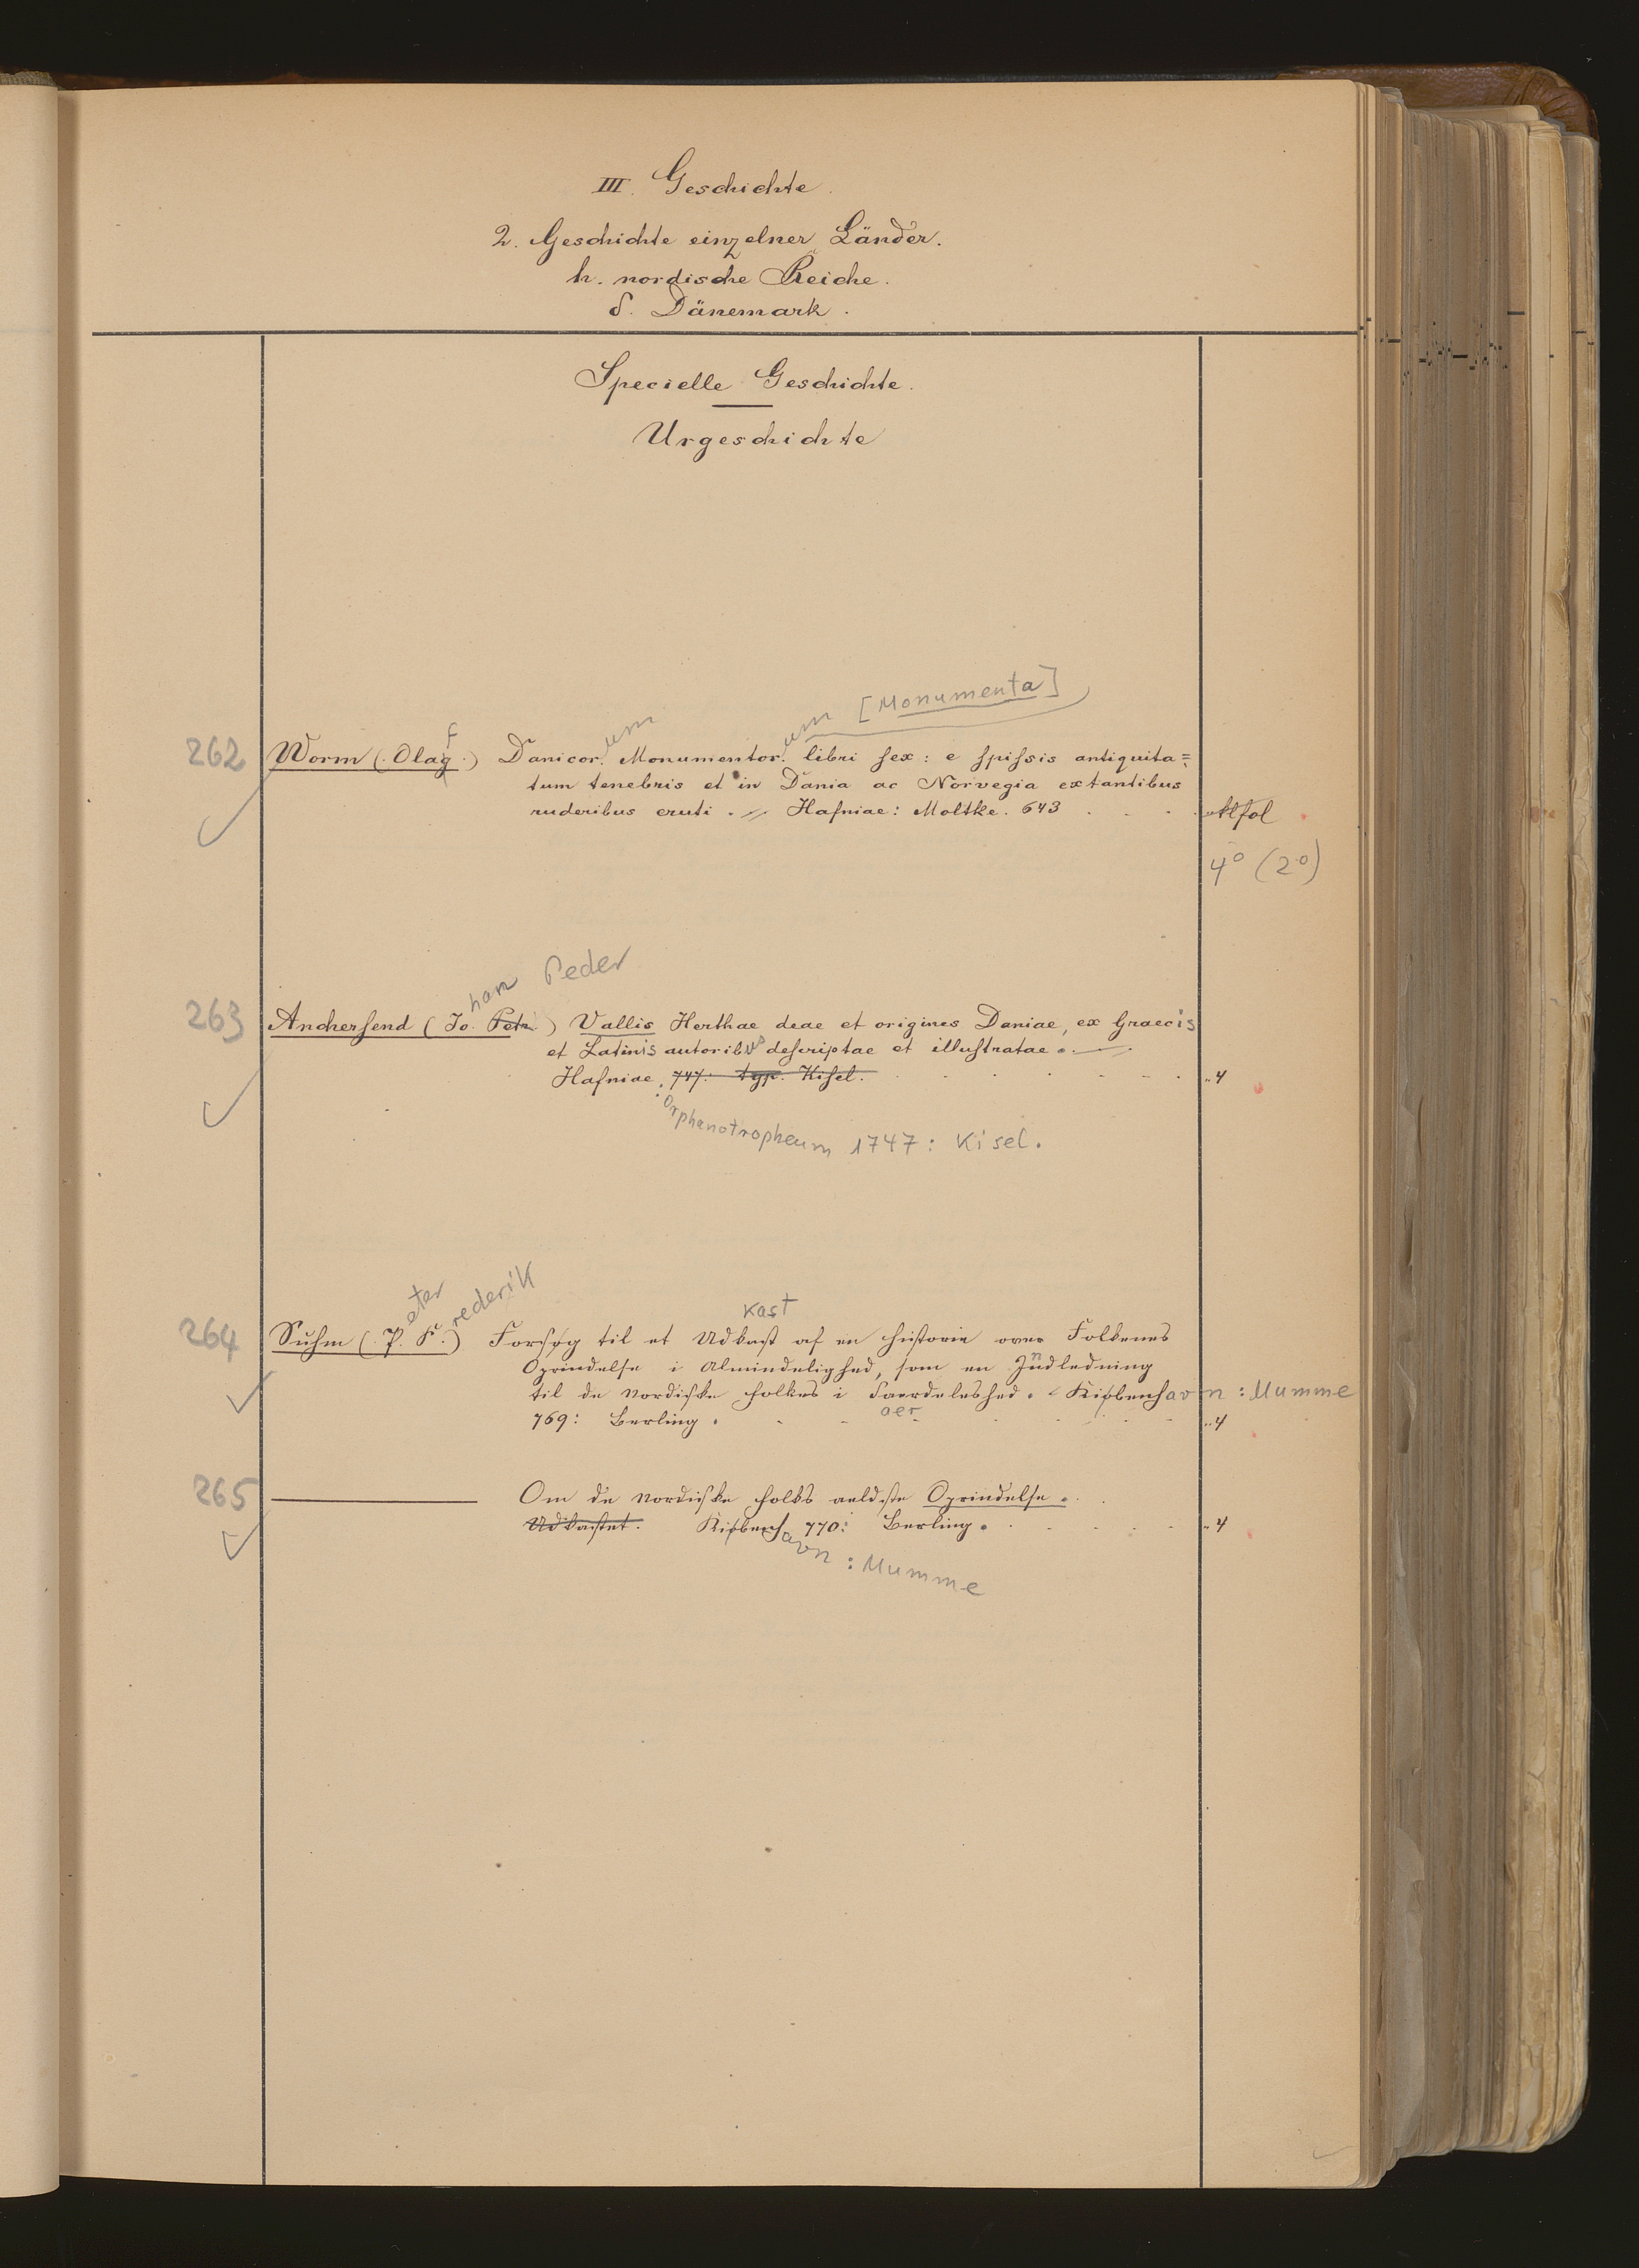 III. Geschichte.
2. Geschichte einzelner Länder.
h. nordische Reiche.
δ. Dänemark.
Specielle Geschichte.
Urgeschichte
[Monumenta]
um um
f
262 Worm (Olag.) Danicor. Monumentor. libri sex: e spissis antiquita=
tum tenebris et in Dania ac Norvegia extantibus
ruderibus eruti. Hafniae: Moltke. 643
4° (2°)
han Peder
263 Anchersend (Jo. Petr.) Vallis Herthae deae et origines Daniae, ex Graecis
et Latinis autoribus descriptae et illustratae.
Hafniae, 747: typ. Kisel. 4
Orphanotropheum 1747: Kisel.
eter rederik
kast
264 Suhm (P. F.) Forsøg til et Udkast af en Historie over Folkenes
n
Oprindelse i Almindelighed, som en Indledning
til de Nordiske Folkes i Saerdeleshed. Kiøbenhavn: Mumme
aer
769: Berling. 4
265 Om de Nordiske Folks aeldste Oprindelse.
Udkastet. Kiøbenh. 770: Berling. 4
avn: Mumme